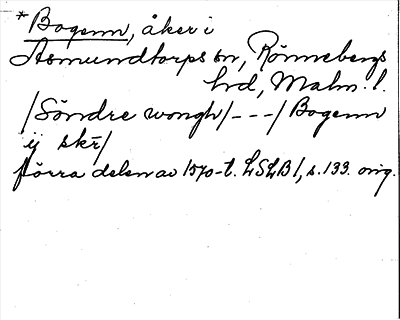 * Bogenn, åker i
Asmundtorps sn, Rönnebergs
hd, Malm. l.
/Söndre wongh/---/Bogenn
ij skr/
förra delen av 1570-t. LSLB 1, s. 133. orig.